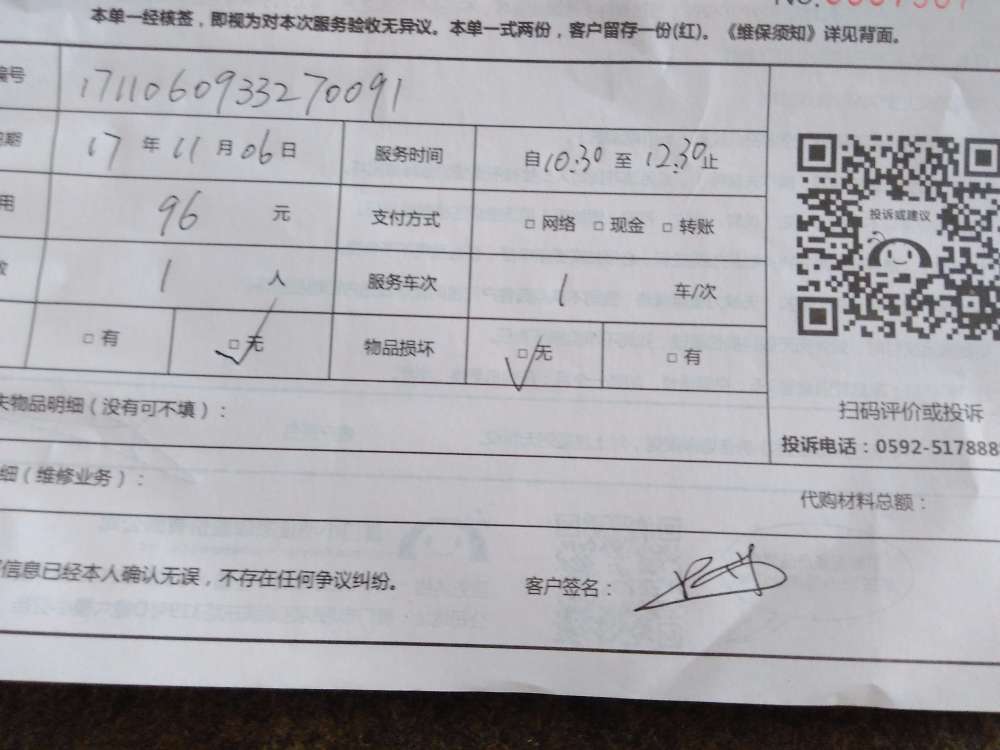 本单一经核签，即视为对本次服务验收无异议。本单一式两份，客户留存一份(红)。《维保须知》详见背面。
编号 1711060933270091
17 年 11 月 06 日 服务时间 自 10:30 至 12:30 止
用 96 元 支付方式 □ 网络 □ 现金 □ 转账
1 人 服务车次 1 车/次
□ 有 □ 无 物品损坏 □ 无 □ 有
投诉或建议
扫码评价或投诉
投诉电话：0592-5178888
失物品明细（没有可不填）：
细（维修业务）：
代购材料总额：
信息已经本人确认无误，不存在任何争议纠纷。
客户签名：